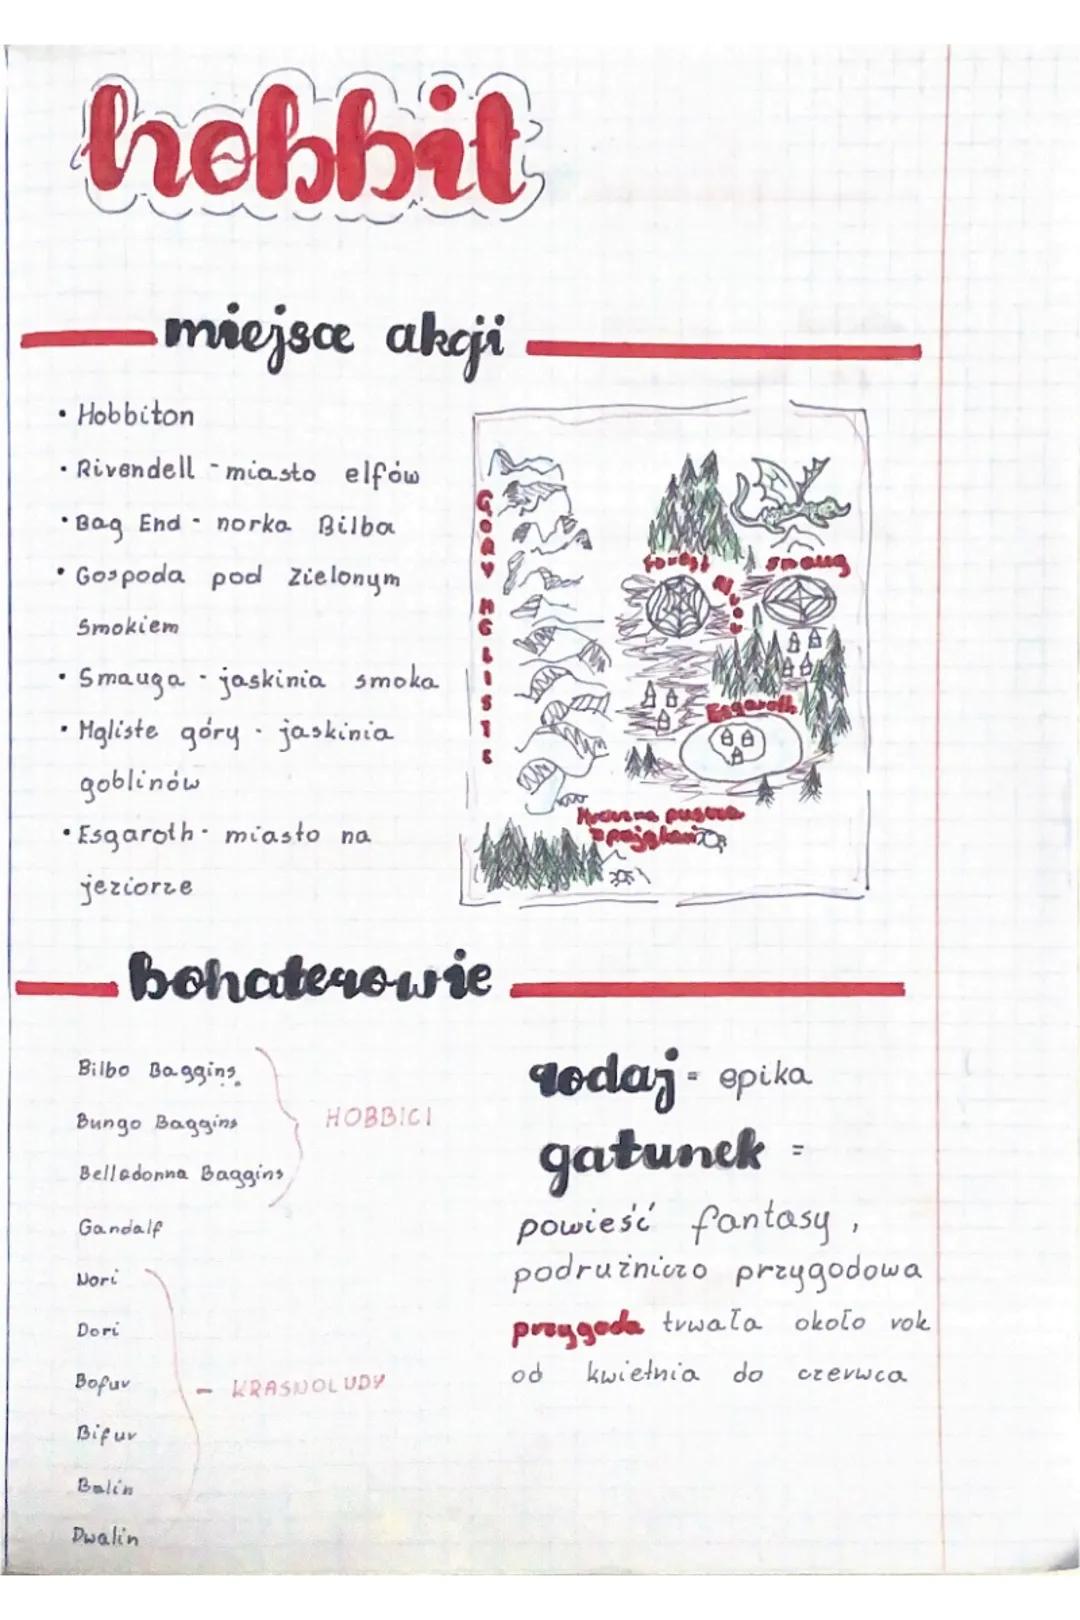 hobbit
miejsce akcji
• Hobbiton
• Rivendell - miasto elfów
• Bag End - norka Bilba
• Gospoda pod Zielonym
Smokiem
• Smauga - jaskinia smoka
• Mgliste góry - jaskinia
goblinów
• Esgaroth - miasto na
jeziorze
GÓRY MGLISTE
forest
smaug
Esgaroth
Mroczna puszcza
z pająkami
Bohaterowie
Bilbo Baggins
Bungo Baggins
Belladonna Baggins
HOBBICI
Gandalf
Nori
Dori
Bofur
Bifur
Balin
Dwalin
- KRASNOLUDY
rodzaj - epika
gatunek =
powieść fantasy,
podrużniczo przygodowa
przygoda trwała około rok
od kwietnia do czerwca